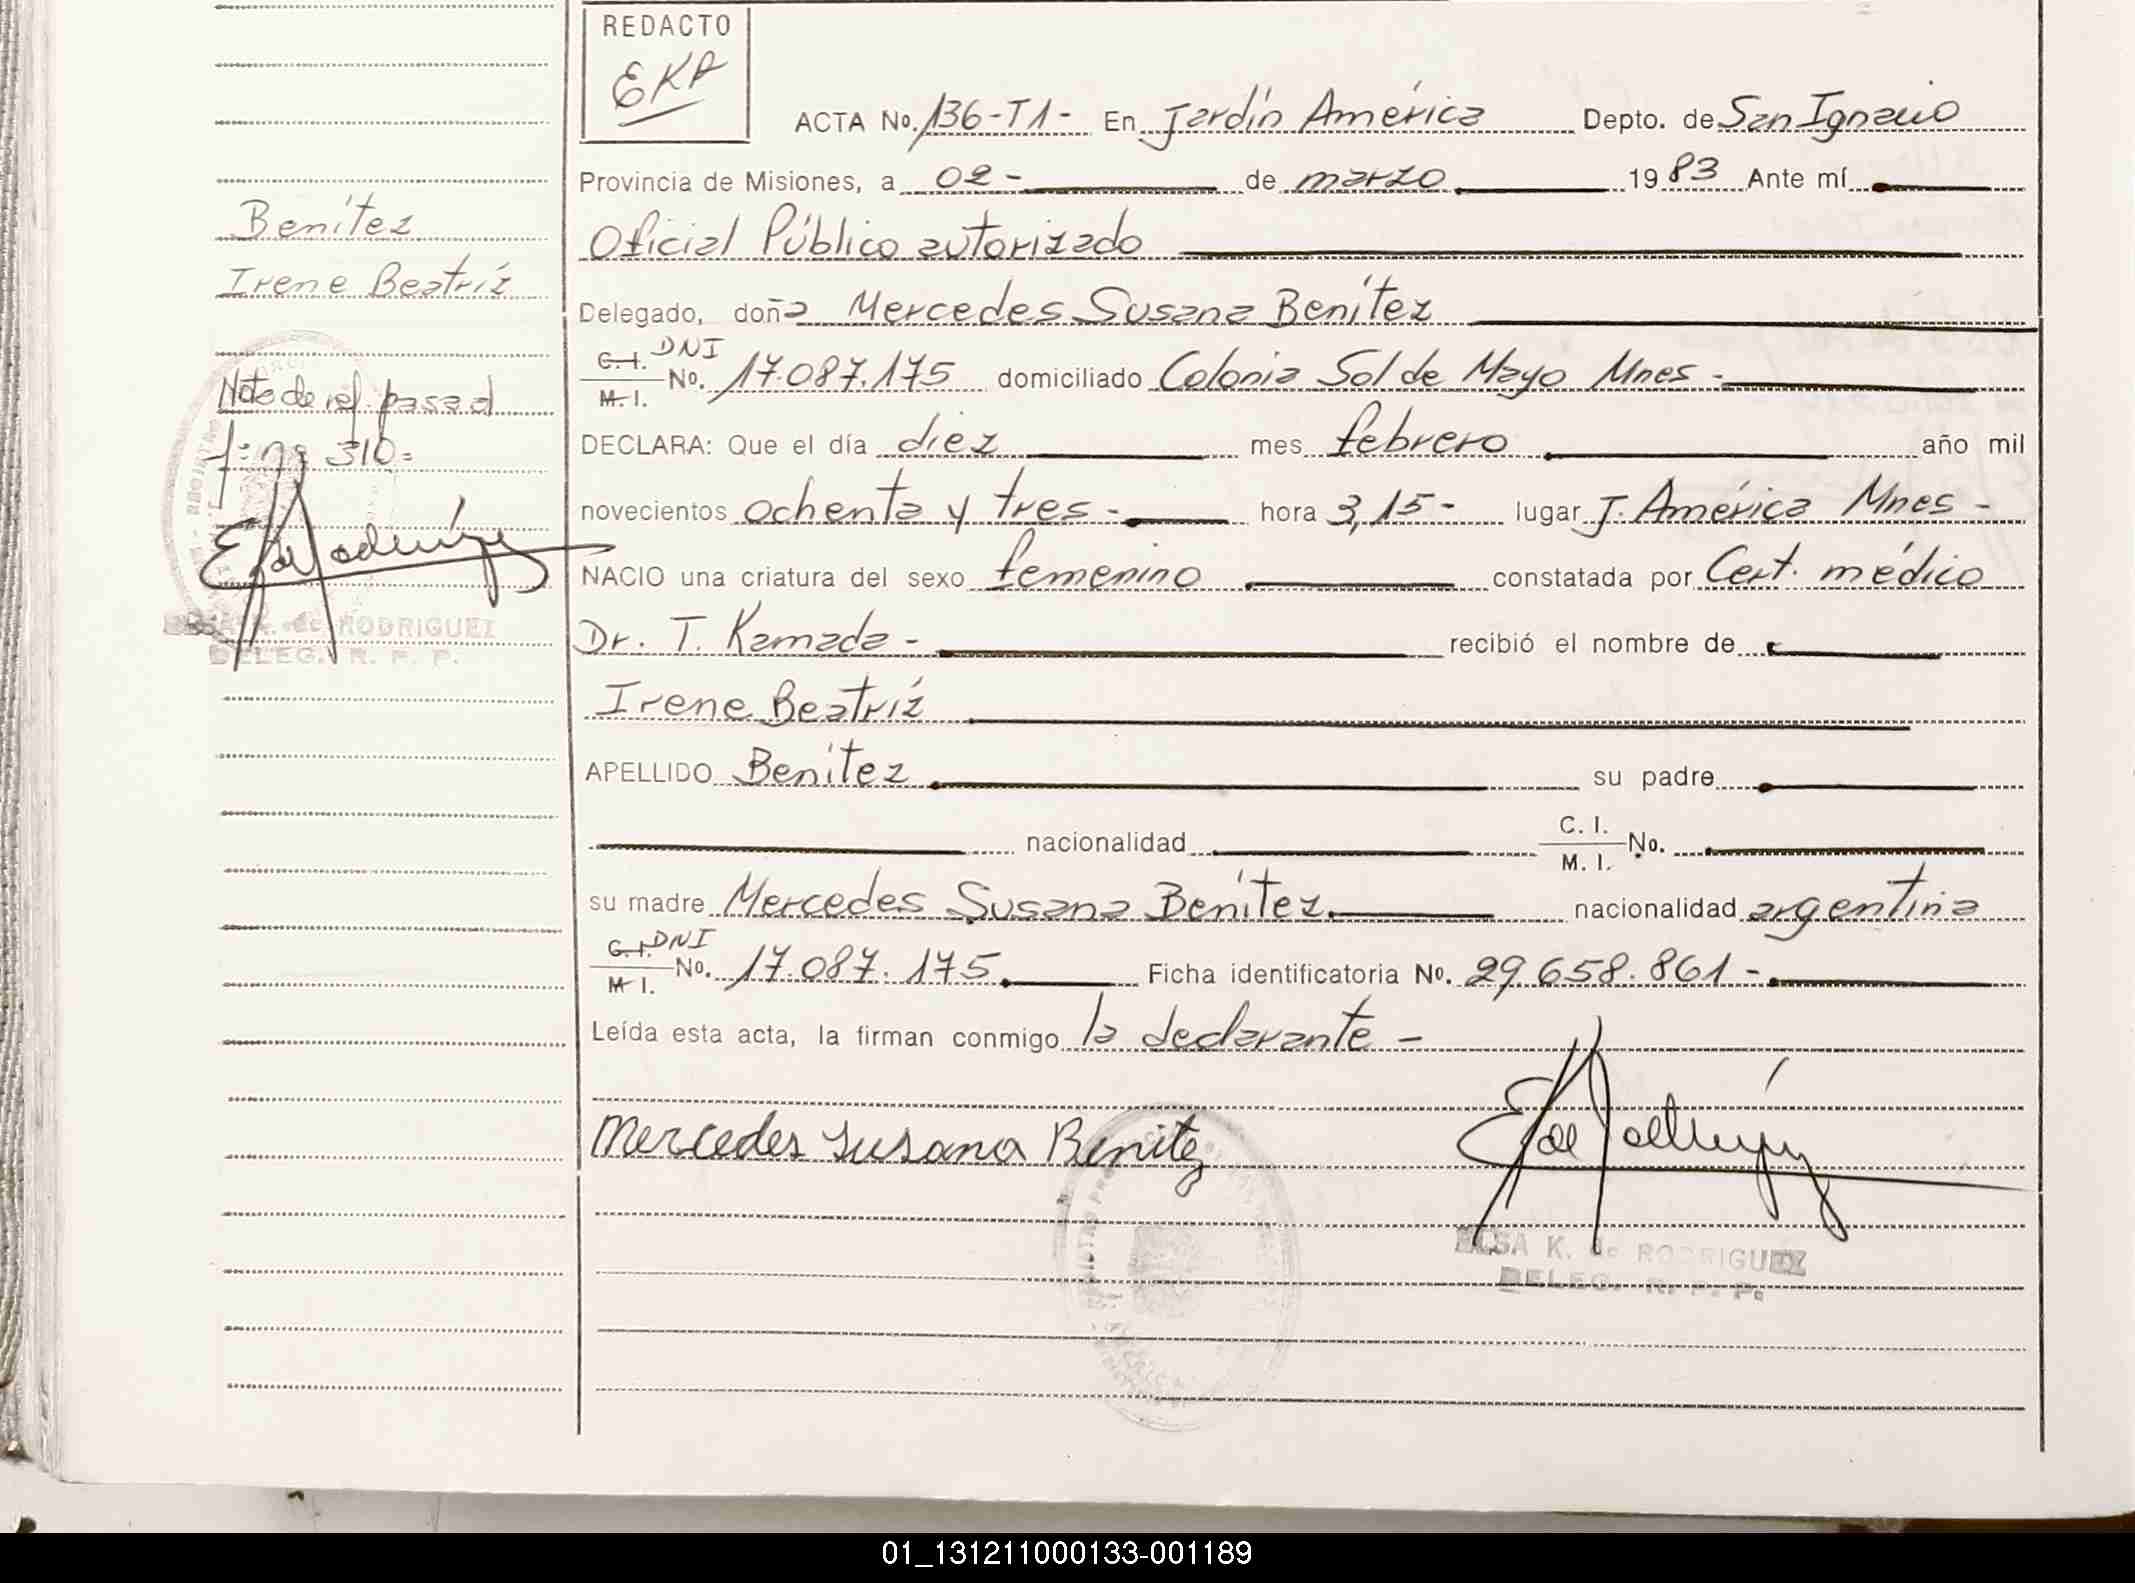 REDACTO
EKR
ACTA No. 136-T1- En Jardín América Depto. de San Ignacio
Provincia de Misiones, a 02- de marzo 1983 Ante mí
Oficial Público autorizado
Delegado, doña Mercedes Susana Benítez
C. I. DNI
M. I. No. 17.087.175 domiciliado Colonia Sol de Mayo Mnes-
DECLARA: Que el día diez mes febrero año mil
novecientos ochenta y tres- hora 3,15- lugar J. América Mnes-
NACIO una criatura del sexo femenino constatada por Cert. médico
Dr. T. Kamada- recibió el nombre de
Irene Beatríz
APELLIDO Benítez su padre
nacionalidad C. I. M. I. No.
su madre Mercedes Susana Benítez. nacionalidad argentina
C. I. DNI
M. I. No. 17.087.175. Ficha identificatoria No. 29.658.861-
Leída esta acta, la firman conmigo la declarante-
Mercedes Susana Benitez
ELSA K. de RODRIGUEZ
DELEG. R. P. P.
Benítez
Irene Beatríz
Nota de ref. pasad
310=
K. de RODRIGUEZ
DELEG. R. P. P.
01_131211000133-001189